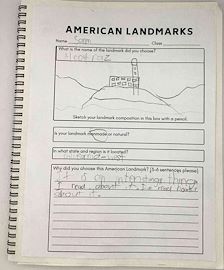 AMERICAN LANDMARKS
Name Sam Class
What is the name of the landmark did you choose?
Sketch your landmark composition in this box with a pencil.
Is your landmark manmade or natural?
In what state and region is it located?
Why did you choose this American Landmark? (3-6 sentences please)
It is an intersting thing
I read about it. I've read books
about it.